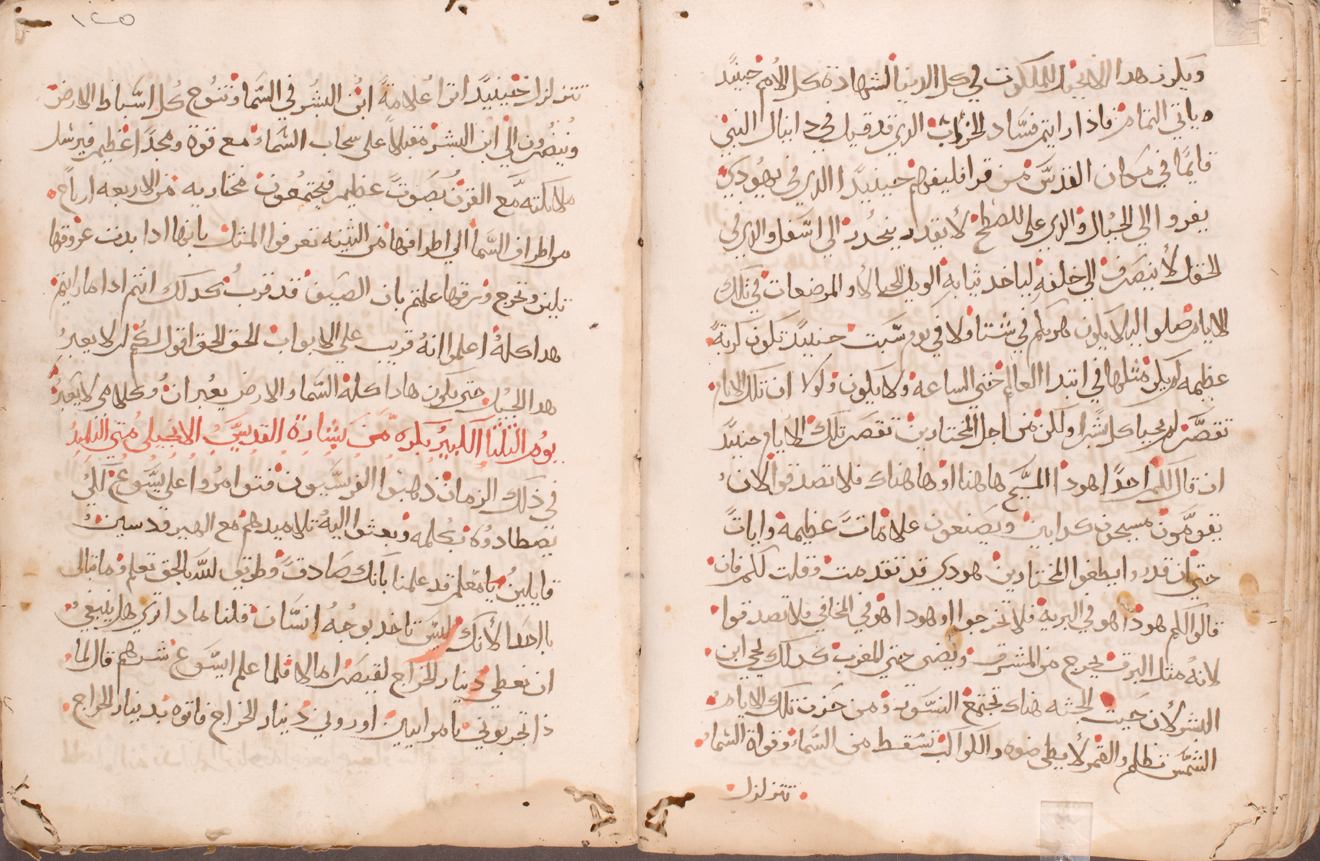 ويكرز هدا الانجيل الملكوت في كل الدنيا لشهادة كل الامم حينيدٍ
ياتي التمام فادا رايتم فسّاد الخراب الدي قد قيل في دانيال النبي
قايمًا في مكان القدس من قرا فليفهم حينيدًا الدي في يهودي
يفروا الي الجبال والدي علي السطح لا يقدر ينحدر الي اسّفل والدي في
الحقل لا ينصرف الي خلفه لياخد ثيابه الويل للحبالا والمرضعات في تلك
الايام صلوا ليلا يكون هربكم في شتا ولا في يوم سّبت حينيدٍ تكون كربةً
عظيمه لم يكن مثلها في ابتدا العالم حتي الساعه ولا يكون ولولا ان تلك الايام
تقصّر لم يحيا كل بشرًا ولكن من اجل المختارين تقصر تلك الايام حينيدٍ
ان قال لكم احدًا هودا المسيح هاهنا او هاهناك فلا تصدقوا لان
يقومّون مسيحون كدابين ويصنعون علاماتً عظيمه واياتً
حتي ان قدروا يطغوا المختارين هودي قد تقدمت وقلت لكم فان
قالوا لكم هودا هو في البريه فلا تخرجوا او هودا هو في المخافي فلا تصدقوا
لانه مثل البرق يخرج من المشرق ويضي حتي للمغرب كدلك مجي ابن
البشر لان حيت الجثه هناك تجتمع النسّور ومن حزن تلك الايام
الشمس تظلم والقمر لا يعطي ضوه والكواكب تسّقط من السّماء وقواة السّماء
تتزلزل
١٢٥
تتزلزل حينيدًا اترا علامةً ابن البشر في السّما وتنوح كل اسّباط الارض
وينضرون الي ابن البشر مقبلاً علي سحاب السّماء مع قوة ومجدًا عظيم فيرسل
ملايكته مع القرن بصوتً عظيم فيجتمعون مختاريه من الاربعه ارياح
من اطراف السّما الي اطرافها من التينه تعرفوا المثل بانها ادا بدت عروقها
تلين وتخرج ورقها علمتم بان الصيف قد قرب كدلك انتم ادا ما رايتم
هدا كله اعلموا انه قريب علي الابواب الحق الحق اقول لكم لا يعبر
هدا الجيل حتي يكون هادا كله السّما والارض يعبران وكلامي لا يعبر
يوم الثلثا الكبير بكره من بشارة القديسّ الانجيلي متي التلميد
في دلك الزمان دهبوا الفرسّيون فتوامروا علي يسّوع لكي
يصطادوه بكلمه وبعثوا اليه تلاميدهم مع الهيرودسين
قايلين يا معلم قد علمنا بانك صادقً وطريق للّه بالحق تعلم وما تبالي
باحدًا لانك ليس تاخد بوجه انسّان فلنا مادا تري هل ينبغي
ان نعطي دينار الخراج لقيصر ام لا فلما علم ايسّوع شرهم قال لما
دا تجربوني يا مراييين اوروني دينار الخراج فاتوه بدينار الخراج